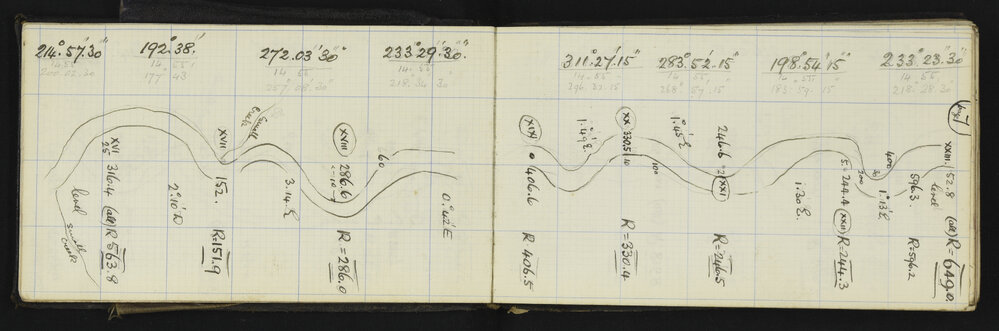 214°.57'.30"
192°.38'.
272.03'30"
233°29'.30."
14.55
200.02.30
14.55
177° 43
14 55
257°08'.30"
14.55.
218.34 30
XVI
25
316.4 (alt) R 563.8
level
small creek
2°.10'D
XVII
152.
R=151.9
small creek
3.14.E
XVIII
286.6
R=286.0
60
0°.42'E
311°.27'.15"
283°.52'.15
198°54'15"
233°.23.30"
14.55
296.32.15
14.55.
268°57'.15
14.55
183.59.15
14.55
218°28.30
XIX
406.6
R 406.5
1°.49'E
XX
330.5
10
R=330.4
100
1°.45'E
246.6
21
XXI
R=246.5
1.30E.
5
244.4
XXII
R=244.3
200
1°13'E
400
596.3
R=596.2
XXIII
152.8 (alt) R=649.0
level